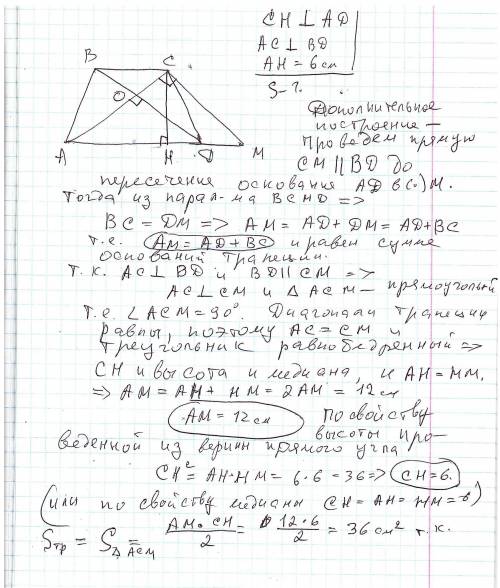 CH ⊥ AD
AC ⊥ BD
AH = 6 см
S - ?
B C
O
A H D M
Дополнительное
построение —
проведем прямую
CM || BD до
пересечения основания AD в (·) M.
Тогда из парал-ма BCMD =>
BC = DM => AM = AD + DM = AD + BC
т.е. AM = AD + BC и равен сумме
оснований трапеции.
т.к. AC ⊥ BD и BD || CM =>
AC ⊥ CM и △ ACM — прямоугольный
т.е. ∠ ACM = 90°. Диагонали трапеции
равны, поэтому AC = CM и
треугольник равнобедренный =>
CH и высота и медиана, и AH = HM.
=> AM = AH + HM = 2AM = 12 см
AM = 12 см по свойству
высоты про-
веденной из вершин прямого угла
CH² = AH·HM = 6·6 = 36 => CH = 6.
(или по свойству медианы CH = AH = HM = 6)
Sтр = S△ACM = AM·CH / 2 = 12·6 / 2 = 36 см² т.к.